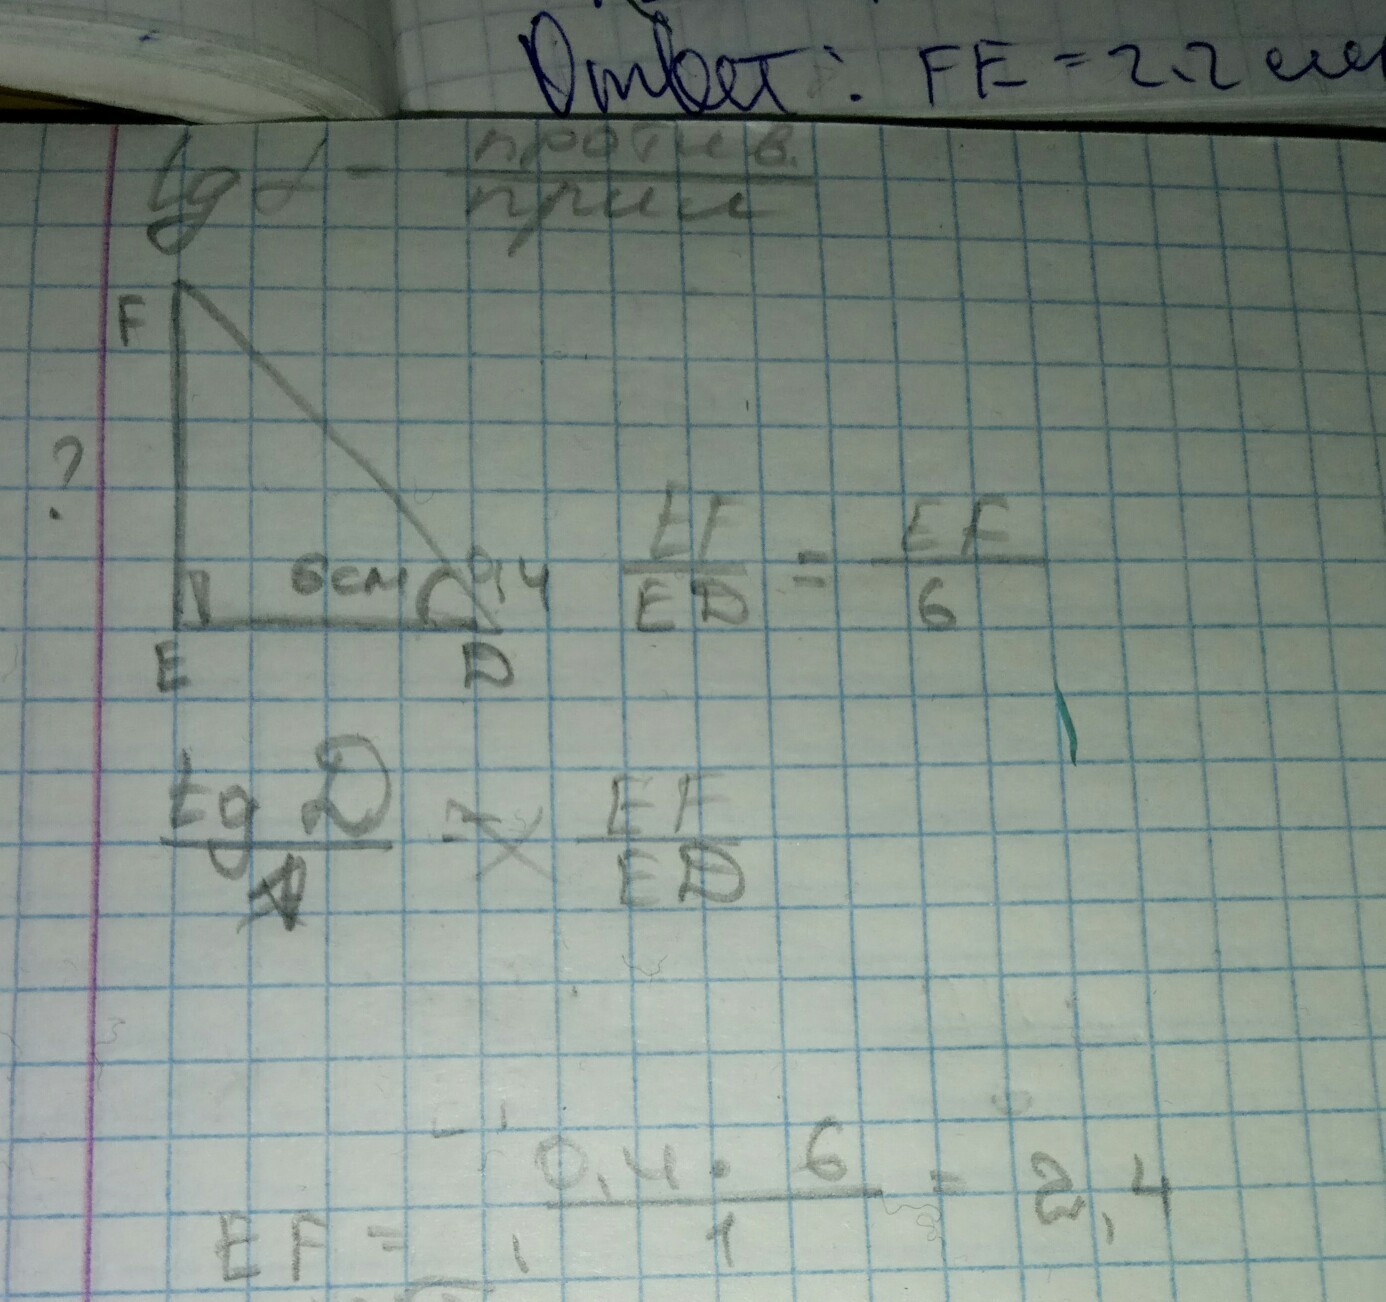 Ответ: FE = 2.2 см
tg α = против. / прил
F
?
6см 0,4
E D
EF / ED = EF / 6
tg D / 1 = EF / ED
EF = 0,4 · 6 / 1 = 2,4